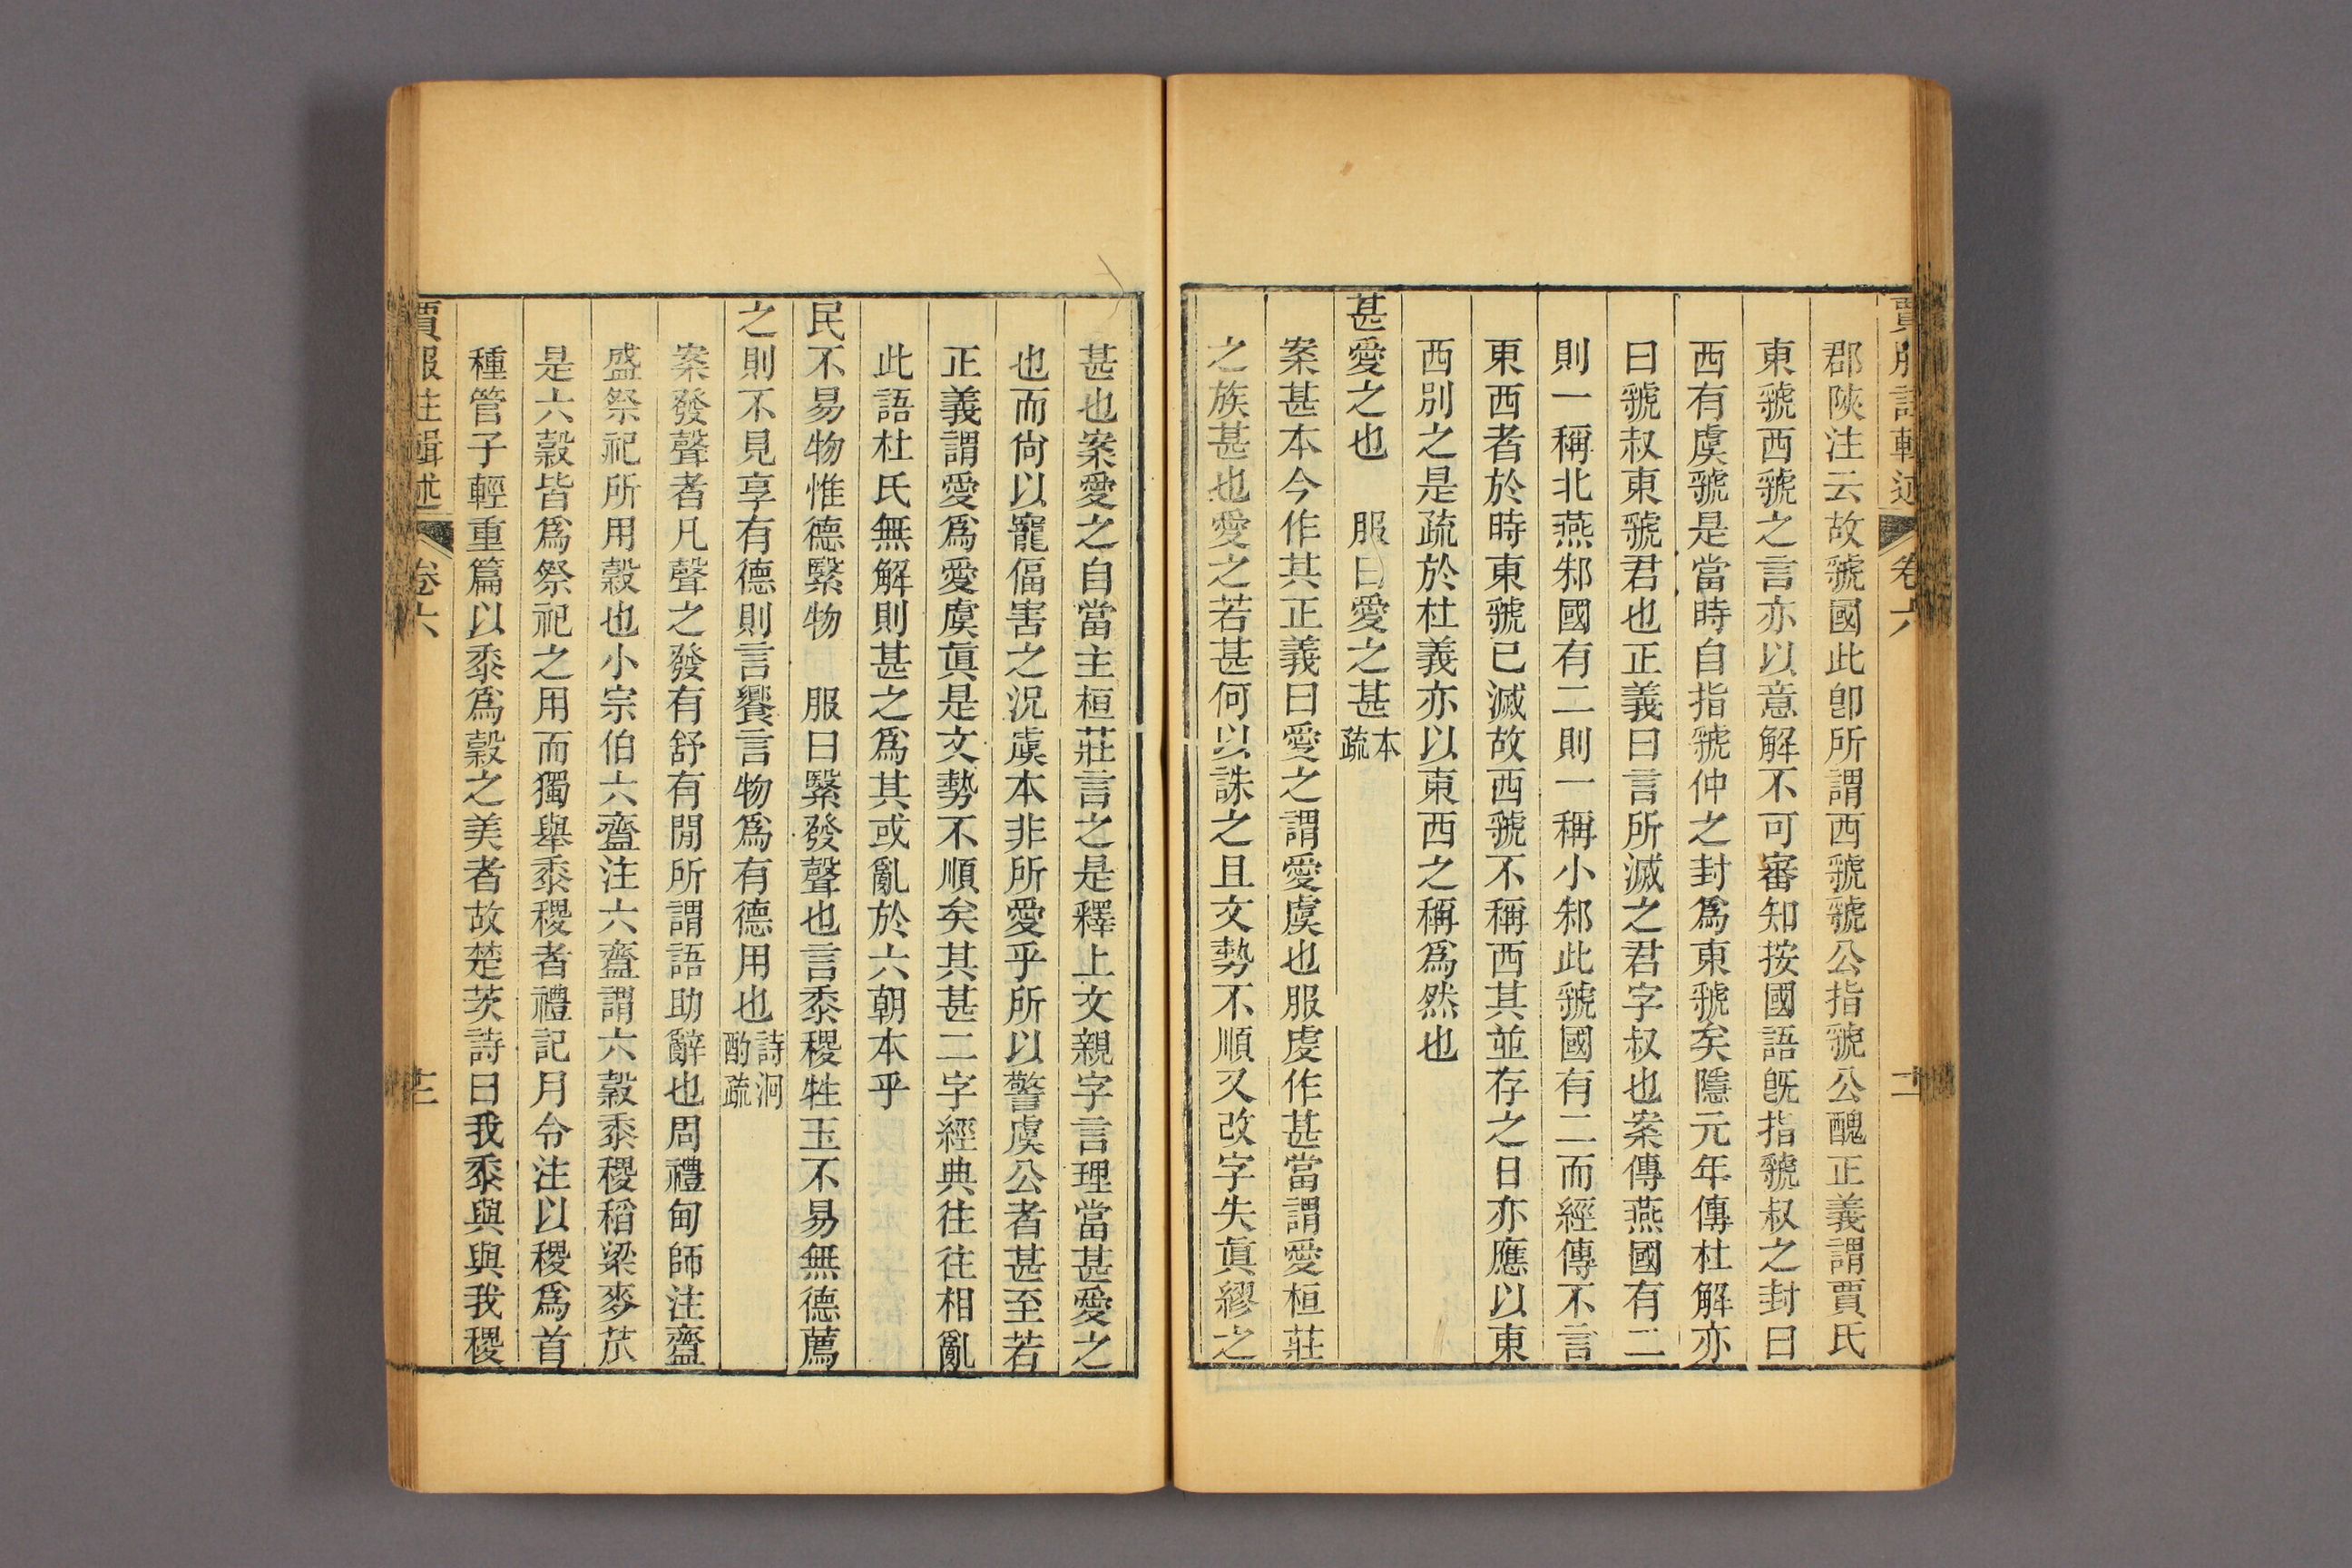 賈服注輯述 卷六 十一
郡陝注云故虢國此卽所謂西虢虢公指虢公醜正義謂賈氏
東虢西虢之言亦以意解不可審知按國語旣指虢叔之封曰
西有虞虢是當時自指虢仲之封爲東虢矣隱元年傳杜解亦
曰虢叔東虢君也正義曰言所滅之君字叔也案傳燕國有二
則一稱北燕邾國有二則一稱小邾此虢國有二而經傳不言
東西者於時東虢已滅故西虢不稱西其並存之日亦應以東
西別之是疏於杜義亦以東西之稱爲然也
甚愛之也 服曰愛之甚本疏
案甚本今作其正義曰愛之謂愛虞也服虔作甚當謂愛桓莊
之族甚也愛之若甚何以誅之且文勢不順又改字失眞繆之
甚也案愛之自當主桓莊言之是釋上文親字言理當甚愛之
也而尙以寵偪害之況虞本非所愛乎所以警虞公者甚至若
正義謂愛爲愛虞眞是文勢不順矣其甚二字經典往往相亂
此語杜氏無解則甚之爲其或亂於六朝本乎
民不易物惟德繄物 服曰繄發聲也言黍稷牲玉不易無德薦
之則不見享有德則言饗言物爲有德用也詩泂酌疏
案發聲者凡聲之發有舒有閒所謂語助辭也周禮甸師注齍
盛祭祀所用穀也小宗伯六齍注六齍謂六穀黍稷稻粱麥苽
是六穀皆爲祭祀之用而獨舉黍稷者禮記月令注以稷爲首
種管子輕重篇以黍爲穀之美者故楚茨詩曰我黍與與我稷
賈服注輯述 卷六 十二